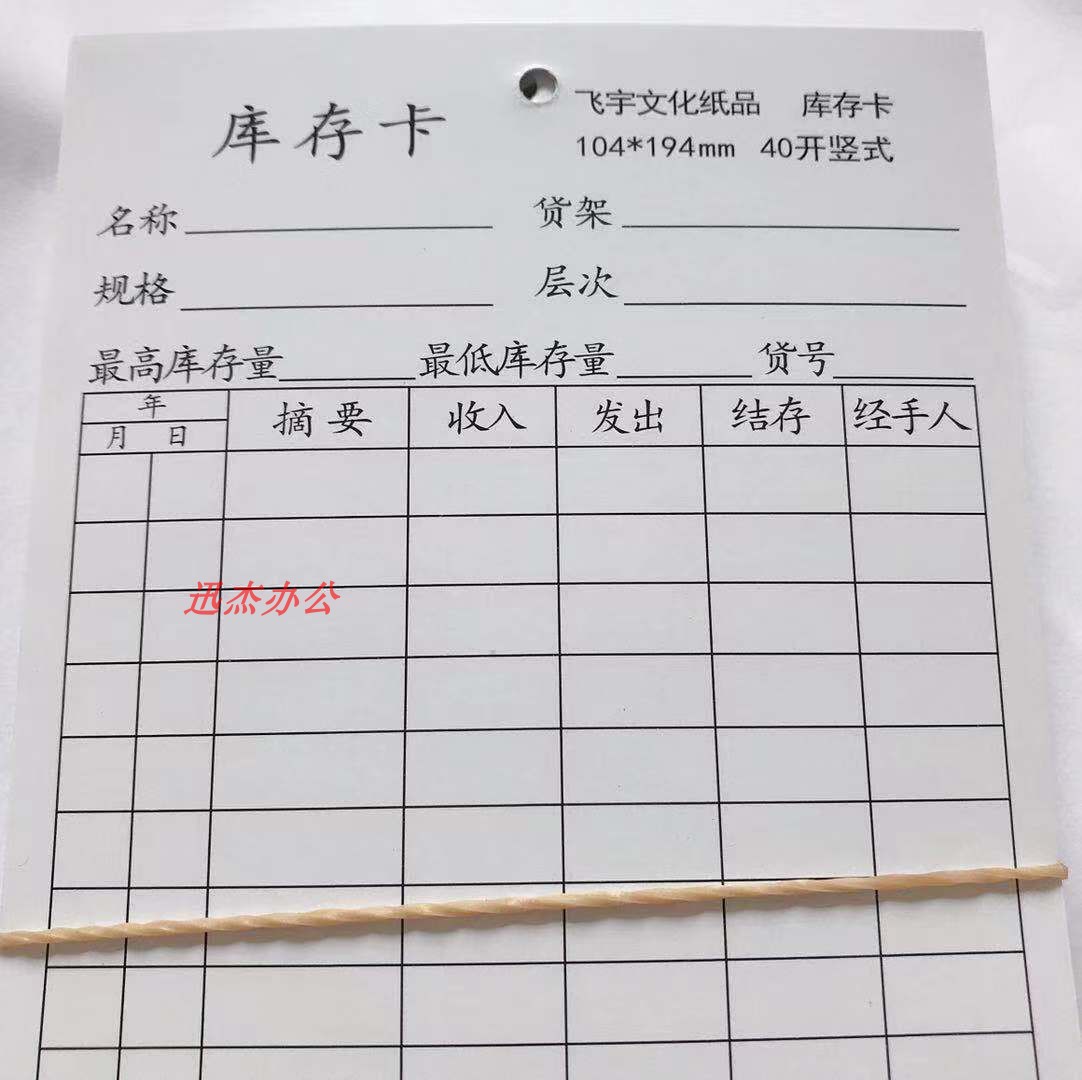 库存卡
飞宇文化纸品 库存卡
104*194mm 40开竖式
名称 贷架
规格 层次
最高库存量 最低库存量 贷号
年 摘要 收入 发出 结存 经手人
月 日
迅杰办公